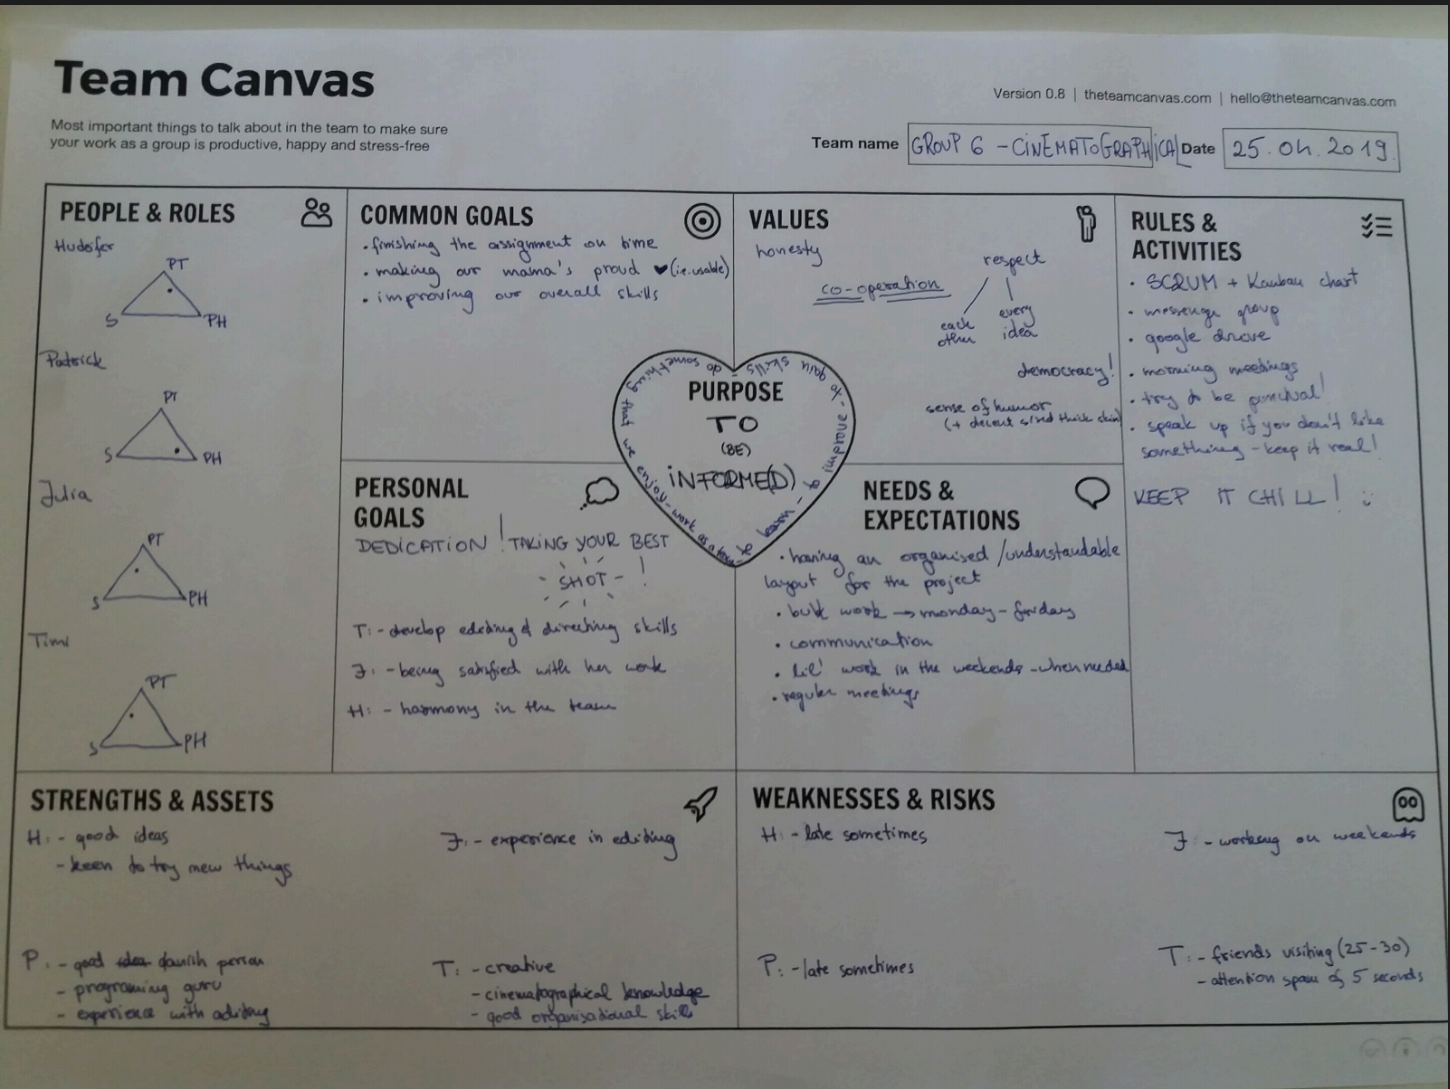 Team Canvas
Most important things to talk about in the team to make sure
your work as a group is productive, happy and stress-free
Version 0.8 | theteamcanvas.com | hello@theteamcanvas.com
Team name GROUP 6 - CiNEMAToGRAPHiCAL Date 25.04.2019.
PEOPLE & ROLES
Hudeifer
PT
S PH
Patrick
PT
S PH
Julia
PT
S PH
Timi
PT
S PH
COMMON GOALS
• finishing the assignment on time
• making our mama's proud ♥ (i.e. usable)
• improving our overall skills
VALUES
honesty
respect
co-operation
each other
every idea
democracy!
sense of humor
(+ decent sized thick skin)
RULES &
ACTIVITIES
• SCRUM + Kanban chart
• messenger group
• google drive
• morning meetings
• try to be punctual!
• speak up if you don't like
something - keep it real!
KEEP IT CHILL! :)
PURPOSE
TO
(BE)
iNFORME(D)
- to gain skills - do something that we enjoy - work as a team - learn & improve
PERSONAL
GOALS
DEDICATION! TAKING YOUR BEST
- SHOT - !
T: - develop editing & directing skills
J: - being satisfied with her work
H: - harmony in the team
NEEDS &
EXPECTATIONS
• having an organised/understandable
layout for the project
• bulk work → monday - friday
• communication
• lil' work in the weekends - when needed
• regular meetings
STRENGTHS & ASSETS
H: - good ideas
- keen to try new things
J: - experience in editing
P: - good danish person
- programing guru
- experience with editing
T: - creative
- cinematographical knowledge
- good organisational skills
WEAKNESSES & RISKS
H: - late sometimes
J: - working on weekends
P: - late sometimes
T: - friends visiting (25-30)
- attention span of 5 seconds